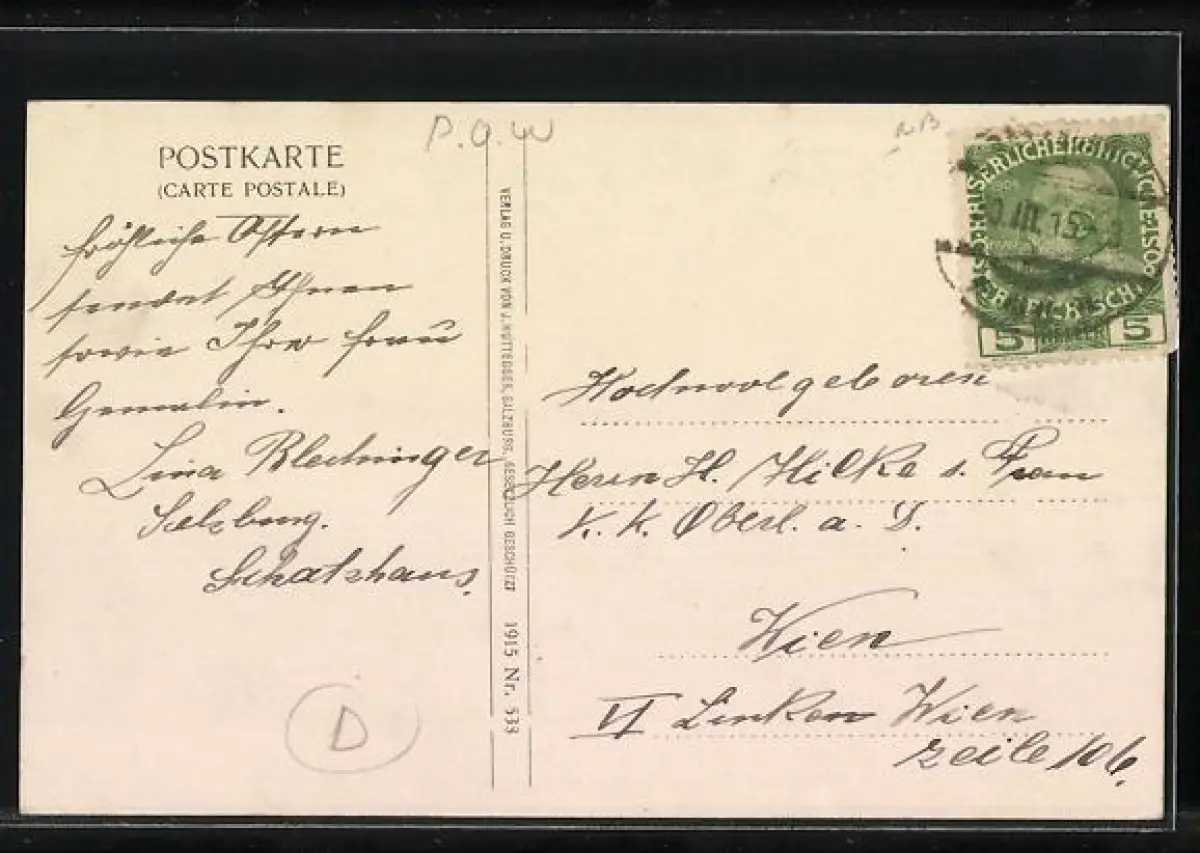 POSTKARTE
(CARTE POSTALE)
P.O.W
NB
fröhliche Ostern
sendet Ihnen
sowie Ihrer Frau
Gemalin.
Lina Blechinger
Salzburg.
Schatzhaus.
D
VERLAG U. DRUCK VON J. HUTTEGGER, SALZBURG, GESETZLICH GESCHÜTZT 1915 Nr. 533
III.15
5 5
Hochwolgeboren
Herrn H. Hilke s. Frau
K. K. Oberl. a. D.
Wien
VI Linken Wien
zeile 106.